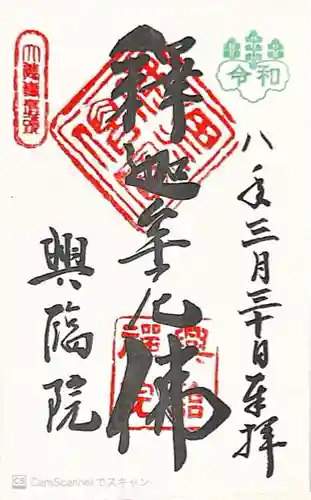 令和
八年三月三十日奉拝
釋迦牟尼佛
興臨院
CamScannerでスキャン